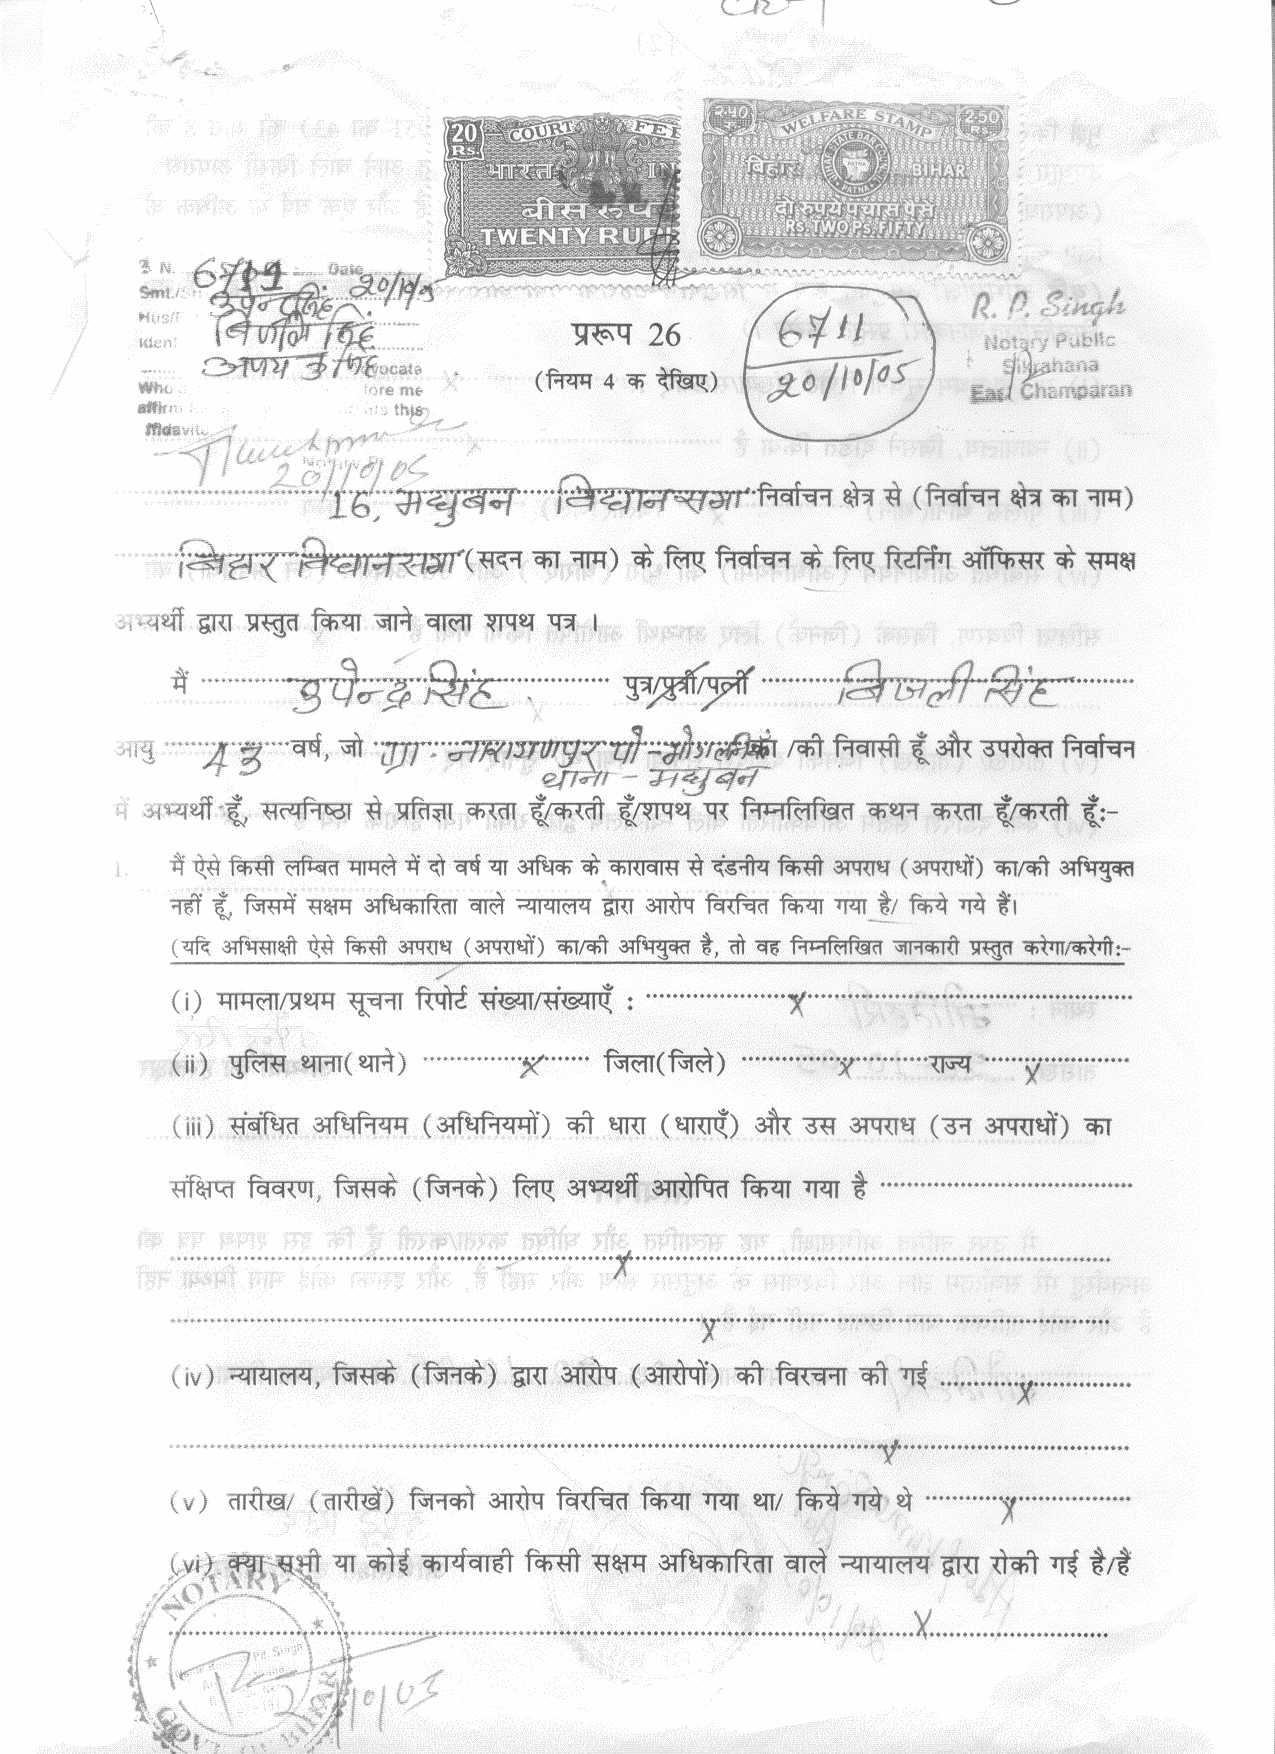 20 Rs. COURT FEE
भारत IN
बीस रुपये
TWENTY RUP
2.50 WELFARE STAMP 2-50 RS.
बिहार BIHAR
STATE BAR PATNA
दो रुपये पचास पैसे
RS. TWO PS. FIFTY
S N. 6711 Date 20/10/05
Smt./
उपेन्द्र सिंह
बिजली सिंह
Iden
अजय कु सिंह Advocate
Who fore me
affirm this
ffidavit
20/10/05
प्ररूप 26
(नियम 4 क देखिए)
6711
20/10/05
R. P. Singh
Notary Public
Sikrahana
East Champaran
16, मधुबन विधानसभा निर्वाचन क्षेत्र से (निर्वाचन क्षेत्र का नाम)
बिहार विधानसभा (सदन का नाम) के लिए निर्वाचन के लिए रिटर्निंग ऑफिसर के समक्ष
अभ्यर्थी द्वारा प्रस्तुत किया जाने वाला शपथ पत्र ।
मैं उपेन्द्र सिंह पुत्र/पुत्री/पत्नी बिजली सिंह
आयु 43 वर्ष, जो ग्रा- नारायणपुर पो- का /की निवासी हूँ और उपरोक्त निर्वाचन
थाना - मधुबन
में अभ्यर्थी हूँ, सत्यनिष्ठा से प्रतिज्ञा करता हूँ/करती हूँ/शपथ पर निम्नलिखित कथन करता हूँ/करती हूँ:-
1. मैं ऐसे किसी लम्बित मामले में दो वर्ष या अधिक के कारावास से दंडनीय किसी अपराध (अपराधों) का/की अभियुक्त
नहीं हूँ, जिसमें सक्षम अधिकारिता वाले न्यायालय द्वारा आरोप विरचित किया गया है/ किये गये हैं।
(यदि अभिसाक्षी ऐसे किसी अपराध (अपराधों) का/की अभियुक्त है, तो वह निम्नलिखित जानकारी प्रस्तुत करेगा/करेगी:-
(i) मामला/प्रथम सूचना रिपोर्ट संख्या/संख्याएँ : x
(ii) पुलिस थाना(थाने) x जिला(जिले) x राज्य x
(iii) संबंधित अधिनियम (अधिनियमों) की धारा (धाराएँ) और उस अपराध (उन अपराधों) का
संक्षिप्त विवरण, जिसके (जिनके) लिए अभ्यर्थी आरोपित किया गया है
x
x
(iv) न्यायालय, जिसके (जिनके) द्वारा आरोप (आरोपों) की विरचना की गई x
x
(v) तारीख/ (तारीखें) जिनको आरोप विरचित किया गया था/ किये गये थे x
(vi) क्या सभी या कोई कार्यवाही किसी सक्षम अधिकारिता वाले न्यायालय द्वारा रोकी गई है/हैं
x
NOTARY
GOVT. OF BIHAR